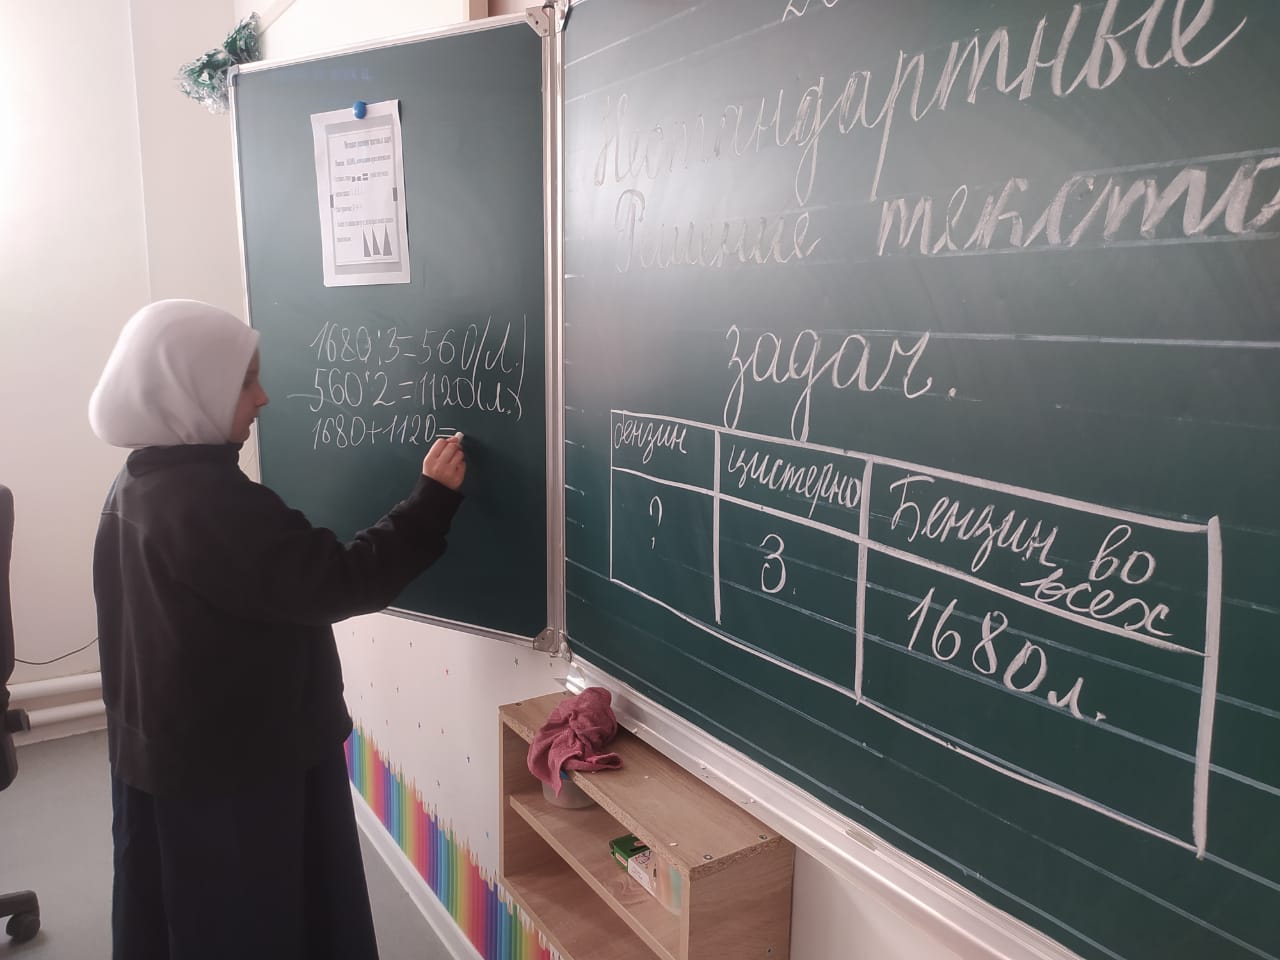 1680:3=560(л.)
560:2=1120(л.)
1680+1120=
Нестандартные
Решение тексто
задач.
бензин
цистерно
Бензин во
всех
?
3
1680л.